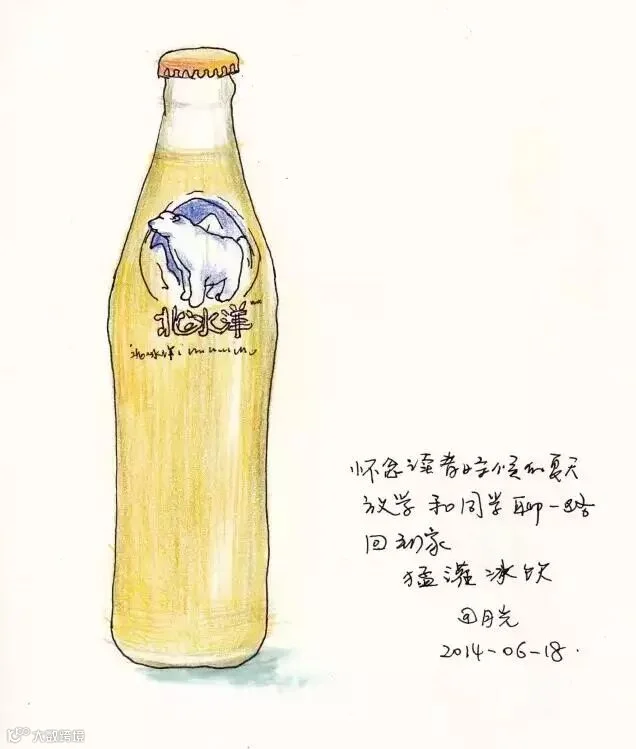 北冰洋
北冰洋
怀念读书时候的夏天
放学和同学聊一路
回到家
猛灌冰饮
田月光
2014-06-18.
大数跨境